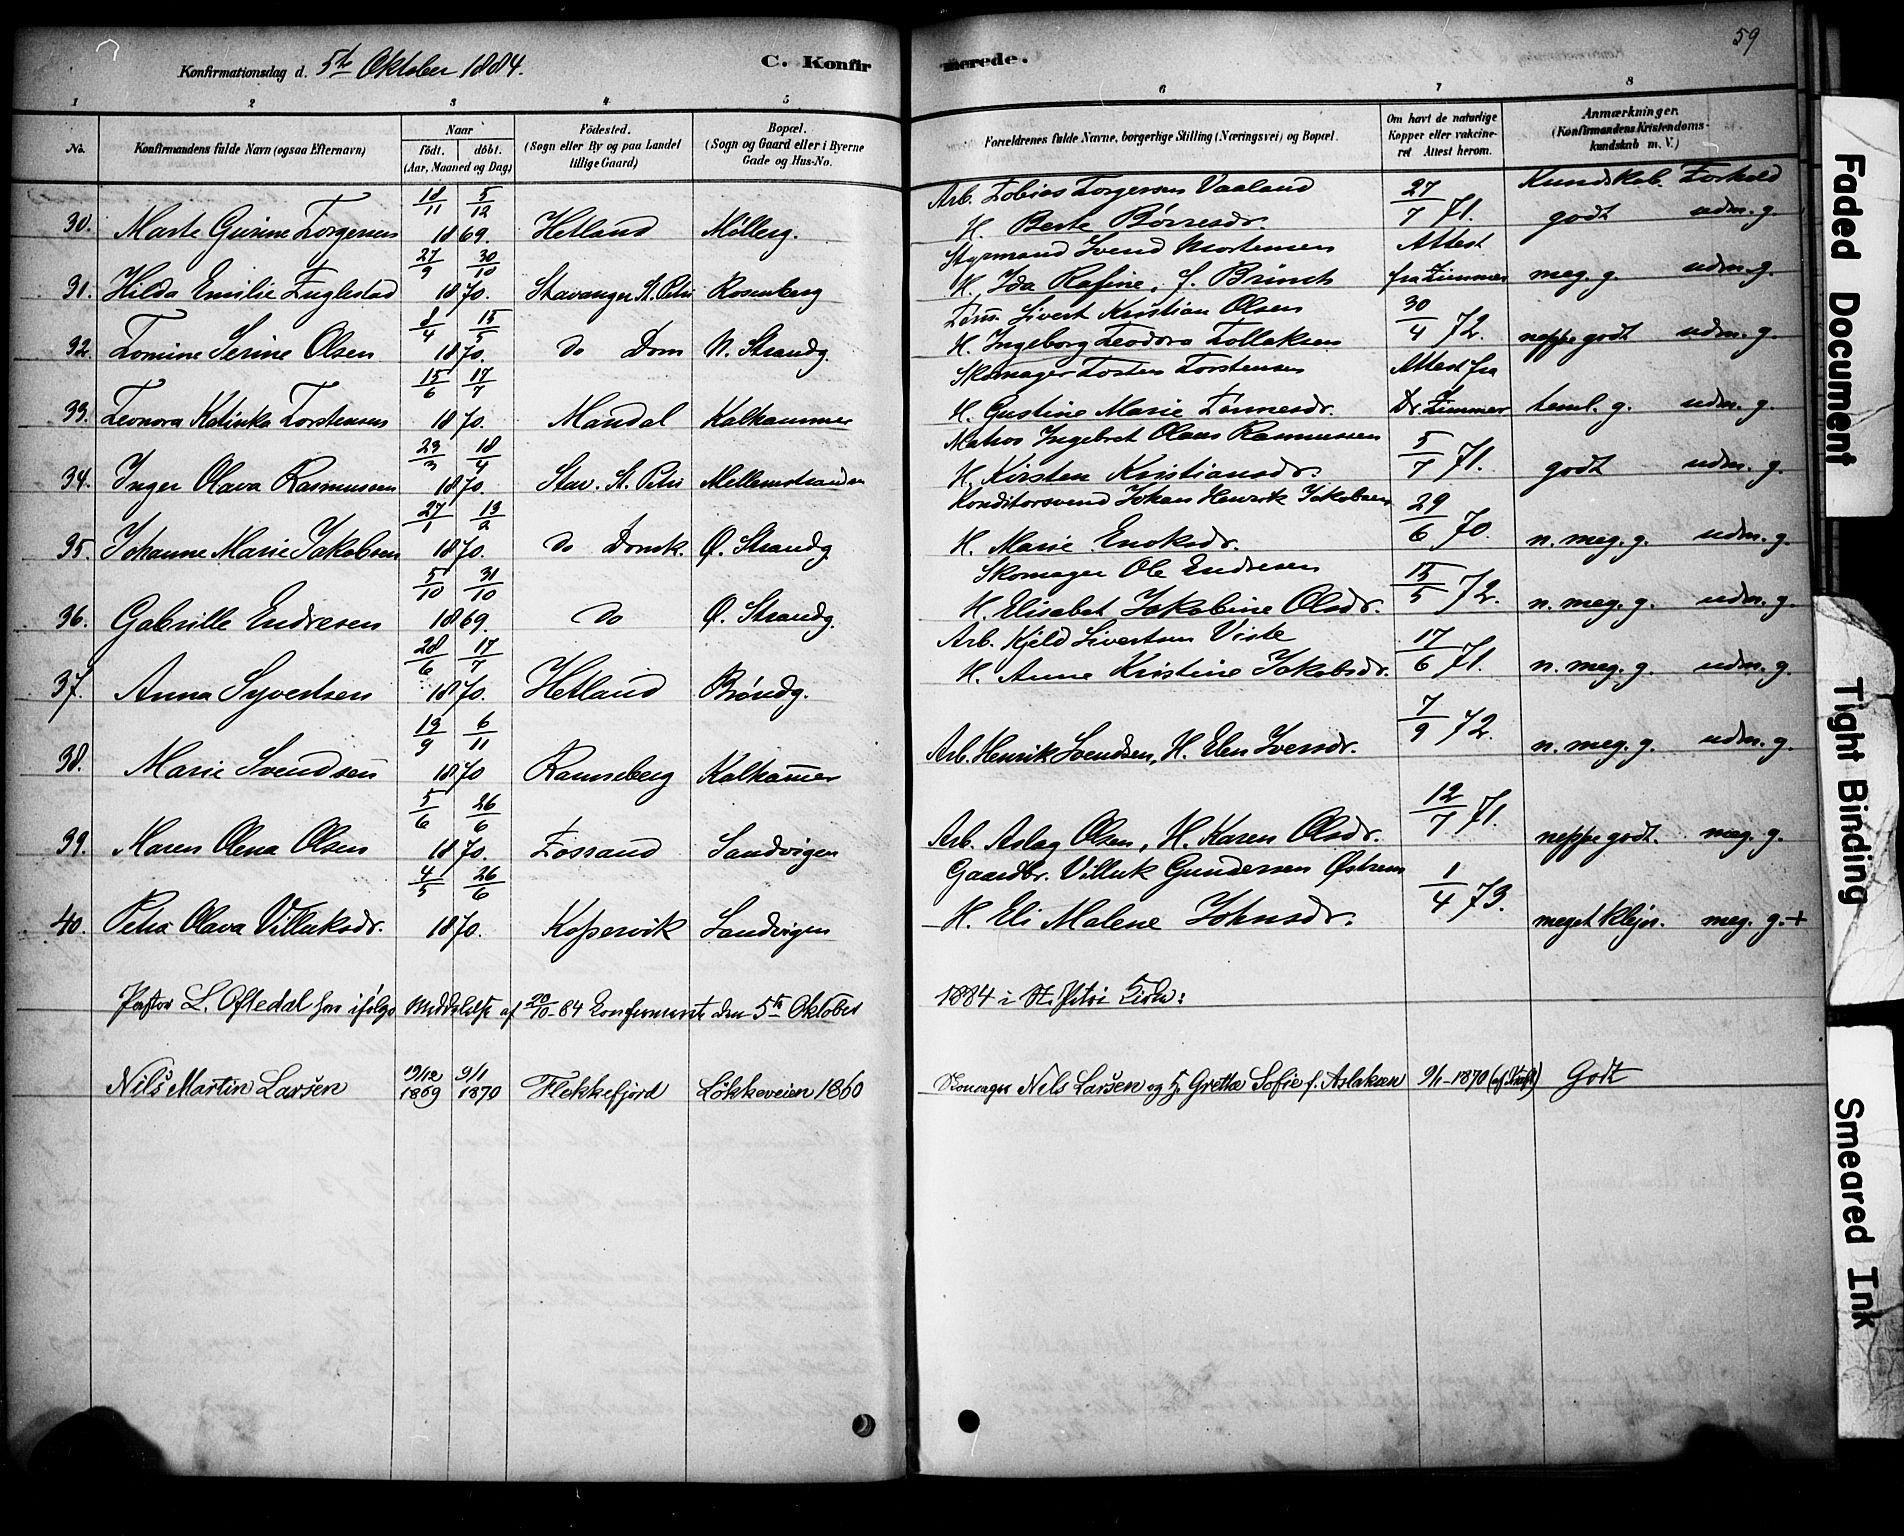 59
Konfirmationsdag d. 5te Oktober 1884. C. Konfirmerede.
1 2 3 4 5 6 7 8
No. Konfirmandens fulde Navn (ogsaa Efternavn) Naar födt. döbt. (Aar, Maaned og Dag) Födested. (Sogn eller By og paa Landet tillige Gaard) Bopæl. (Sogn og Gaard eller i Byerne Gade og Hus-No. Forældrenes fulde Navne, borgerlige Stilling (Næringsvei) og Bopæl. Om havt de naturlige Kopper eller vakcineret Attest herom. Anmærkninger. (Konfirmandens Kristendomskundskab m. V.)
Kundskab. Forhold
30. Marte Gurine Torgersen 18/11 5/12 1869. Hetland Mølleg. Arb. Tobias Torgersen Vaaland H. Berte Børresdr. 27/7 71. godt udm. g.
31. Hilda Emilie Fuglestad 27/9 30/10 1870. Stavanger St. Petri Rosenberg Styrmand Svend Mortensen H. Ida Rafine, f. Brinch Attest fra Zimmer meg. g. udm. g.
32. Tomine Serine Olsen 8/4 15/5 1870. do Dom N. Strandg. Tøm. Sivert Kristian Olsen H. Ingeborg Teodora Tollaksen 30/4 72. neppe godt udm. g.
33. Leonora Katinka Torstensen 15/6 17/7 1870. Mandal Kalhammer Skomager Tosten Torstensen H. Gustine Marie Tønnesdr. Attest fra Dr. Zimmer teml. g. udm. g.
34. Inger Olava Rasmussen 23/3 18/4 1870. Stav. St. Petri Mellemstranden Matros Ingebret Olaus Rasmussen H. Kirsten Kristiansdr. 5/7 71. godt udm. g.
35. Johanne Marie Jakobsen 27/1 13/2 1870. do Domk. Ø. Strandg Konditorsvend Johan Henrik Jakobsen H. Marie Enoksdr. 29/6 70. n. meg. g. udm. g.
36. Gabrille Endresen 5/10 31/10 1869. do Ø. Strandg. Skomager Ole Endresen H. Elisabet Jakobine Olsdr. 15/5 72. n. meg. g. udm. g.
37. Anna Syvertsen 28/6 17/7 1870. Hetland Brøndg. Arb. Kjeld Sivertsen Viste H. Anne Kristine Jakobsdr. 17/6 71. n. meg. g. udm. g.
38. Marie Svendsen 19/9 6/11 1870 Ranneberg Kalhamer Arb. Henrik Svendsen, H. Elen Iversdr. 7/9 72. n. meg. g. udm. g.
39. Maren Olena Olsen 5/6 26/6 1870. Fossand Sandvigen Arb. Aslag Olsen, H. Karen Olsdr. 12/7 71. neppe godt. meg. g.
40. Petra Olava Villuksdr. 4/5 26/6 1870. Kopervik Sandvigen Gaardbr. Villuk Gundersen Østrem H. Eli Malene Johnsdr. 1/4 73. meget klejn. meg. g. +
Pastor L. Oftedal har ifølge Meddelelse af 20/10 84 konfirmeret den 5te Oktober 1884 i St. Petri Kirke:
Nils Martin Larsen 19/12 1869 9/1 1870 Flekkefjord Løkkeveien 1860 Skomager Nils Larsen og H. Grethe Sofie f. Aslaksen 9/1-1870 Godt
Faded Document
Tight Binding
Smeared Ink